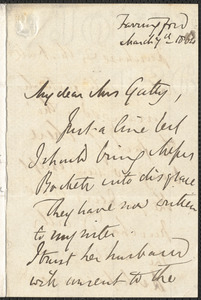 Farringford
March 7th 18
My dear Mrs Gatty,
Just a line lest
I should bring Messrs
Bockett into disgrace
They have now written
to my sister.
I trust her husband
will consent to the